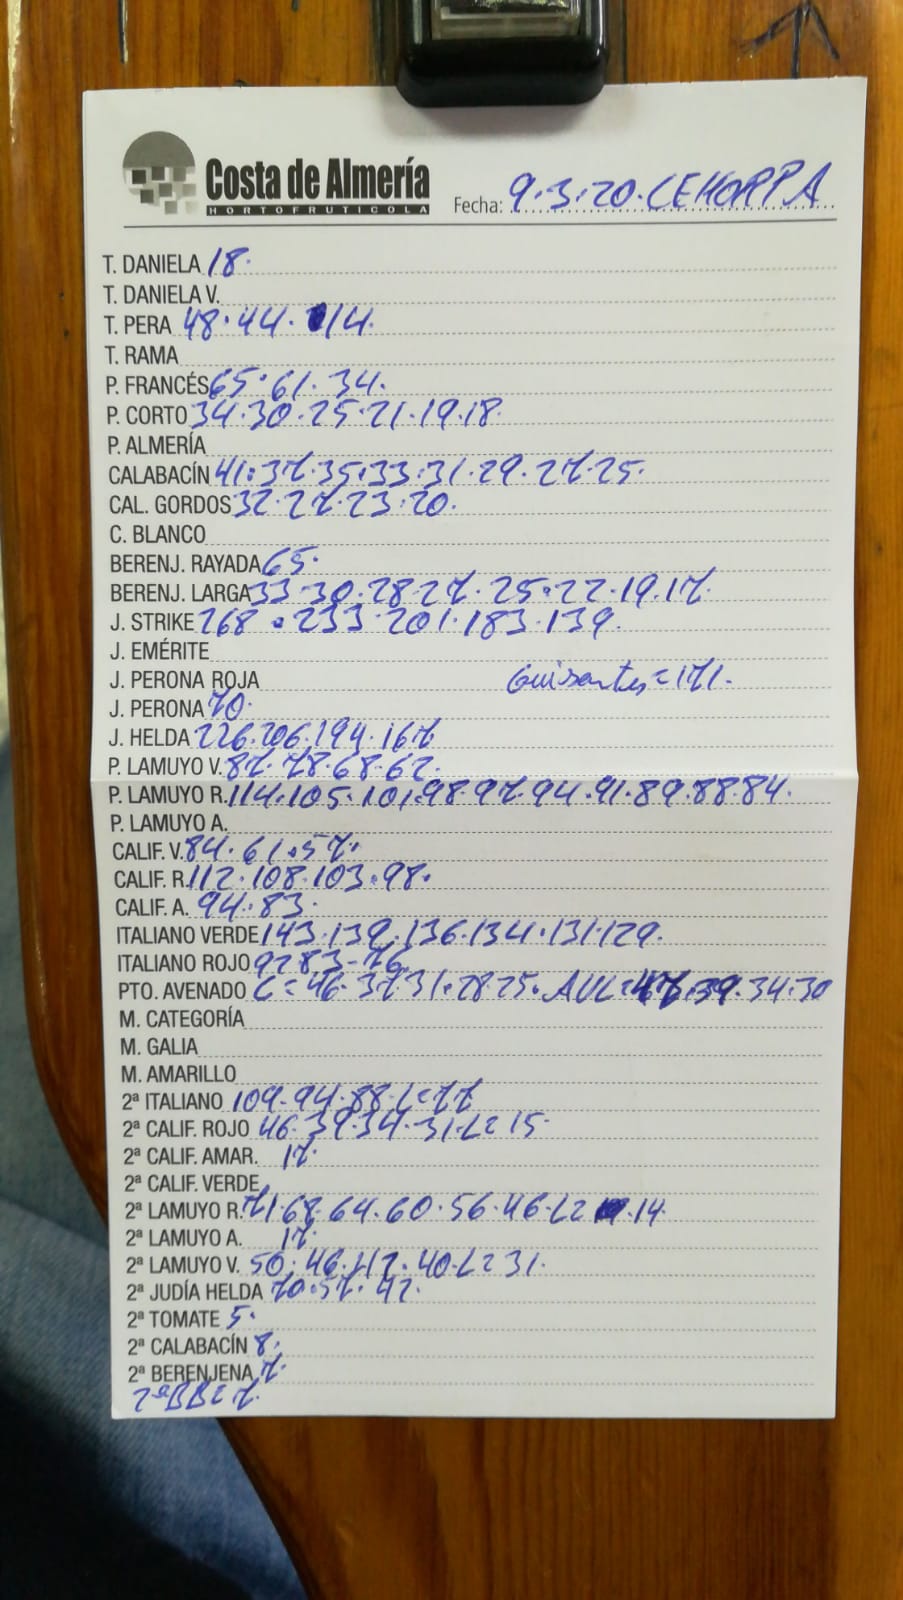 Costa de Almería
HORTOFRUTICOLA
Fecha: 9.3.20. CEHORPA
T. DANIELA 18.
T. DANIELA V.
T. PERA 48.44. 14.
T. RAMA
P. FRANCÉS 65.61.34.
P. CORTO 34.30.25.21.19.18.
P. ALMERÍA
CALABACÍN 41.37.35.33.31.29.27.25.
CAL. GORDOS 32.27.23.20.
C. BLANCO
BERENJ. RAYADA 65.
BERENJ. LARGA 33.30.28.27.25.22.19.17.
J. STRIKE 268.233.201.183.139.
J. EMÉRITE
J. PERONA ROJA Guisantes=171.
J. PERONA 70.
J. HELDA 226.206.194.167
P. LAMUYO V. 87.78.68.62.
P. LAMUYO R. 114.105.101.98.97.94.91.89.88.84.
P. LAMUYO A.
CALIF. V. 84.61.57.
CALIF. R. 112.108.103.98.
CALIF. A. 94.83.
ITALIANO VERDE 143.139.136.134.131.129.
ITALIANO ROJO 92.83-76
PTO. AVENADO C=46.37.31.28.25. AVL= 39.34.30
M. CATEGORÍA
M. GALIA
M. AMARILLO
2ª ITALIANO 109.94.88.L=77
2ª CALIF. ROJO 46.39.34.31.L=15.
2ª CALIF. AMAR. 17.
2ª CALIF. VERDE
2ª LAMUYO R. 71.68.64.60.56.46.L= 14.
2ª LAMUYO A. 17.
2ª LAMUYO V. 50.46. 40.L=31.
2ª JUDÍA HELDA 70.57.42.
2ª TOMATE 5.
2ª CALABACÍN 8.
2ª BERENJENA 7.
2ªBB=7.